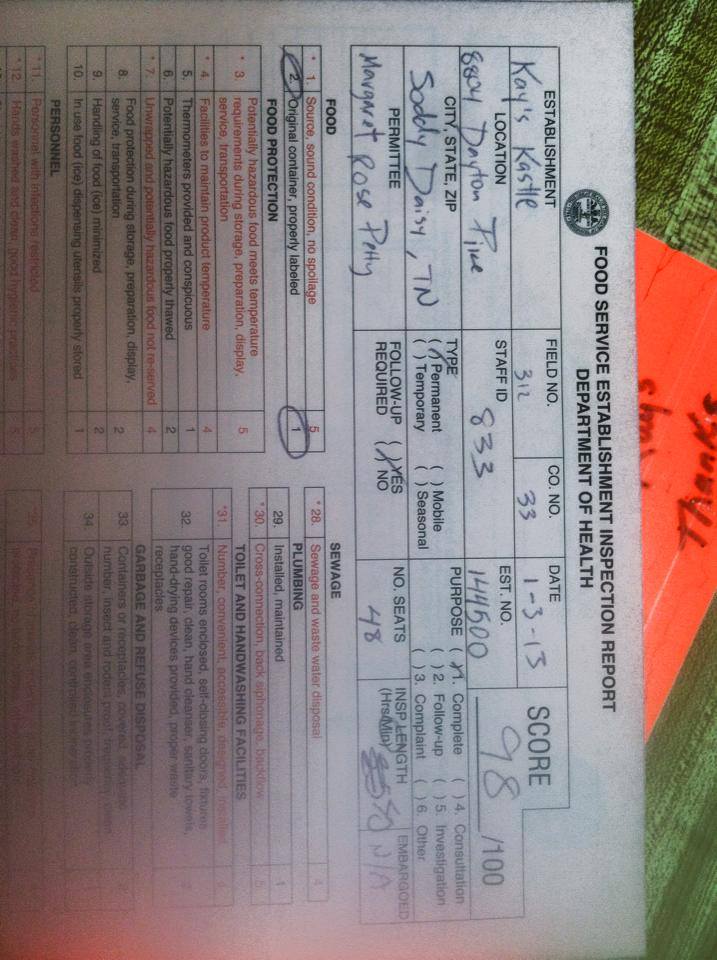 FOOD SERVICE ESTABLISHMENT INSPECTION REPORT
DEPARTMENT OF HEALTH
ESTABLISHMENT
Kay's Kastle
FIELD NO.
312
CO. NO.
33
DATE
1-3-13
SCORE
98 /100
LOCATION
8804 Dayton Pike
STAFF ID
833
EST. NO.
144500
CITY, STATE, ZIP
Soddy Daisy, TN
TYPE
( ) Permanent ( ) Mobile
( ) Temporary ( ) Seasonal
PURPOSE ( ) 1. Complete ( ) 4. Consultation
( ) 2. Follow-up ( ) 5. Investigation
( ) 3. Complaint ( ) 6. Other
PERMITTEE
Margaret Rose Petty
FOLLOW-UP ( ) YES
REQUIRED ( ) NO
NO. SEATS
48
INSP LENGTH
(Hrs/Min)
EMBARGOED
N/A
FOOD
* 1. Source, sound condition, no spoilage 5
2. Original container, properly labeled 1
FOOD PROTECTION
* 3. Potentially hazardous food meets temperature
requirements during storage, preparation, display,
service, transportation 5
* 4. Facilities to maintain product temperature 4
5. Thermometers provided and conspicuous 1
6. Potentially hazardous food properly thawed 2
* 7. Unwrapped and potentially hazardous food not re-served 4
8. Food protection during storage, preparation, display,
service, transportation 2
9. Handling of food (ice) minimized 2
10. In use food (ice) dispensing utensils properly stored 1
PERSONNEL
* 11. Personnel with infections restricted 5
* 12. Hands washed and clean, good hygienic practices 5
SEWAGE
* 28. Sewage and waste water disposal 4
PLUMBING
29. Installed, maintained 1
* 30. Cross-connection, back siphonage, backflow 5
TOILET AND HANDWASHING FACILITIES
* 31. Number, convenient, accessible, designed, installed 4
32. Toilet rooms enclosed, self-closing doors, fixtures
good repair, clean, hand cleanser, sanitary towels,
hand-drying devices provided, proper waste
receptacles
GARBAGE AND REFUSE DISPOSAL
33. Containers or receptacles, covered, adequate
number, insect and rodent proof, frequency, clean
34. Outside storage area enclosures
constructed, clean, controlled